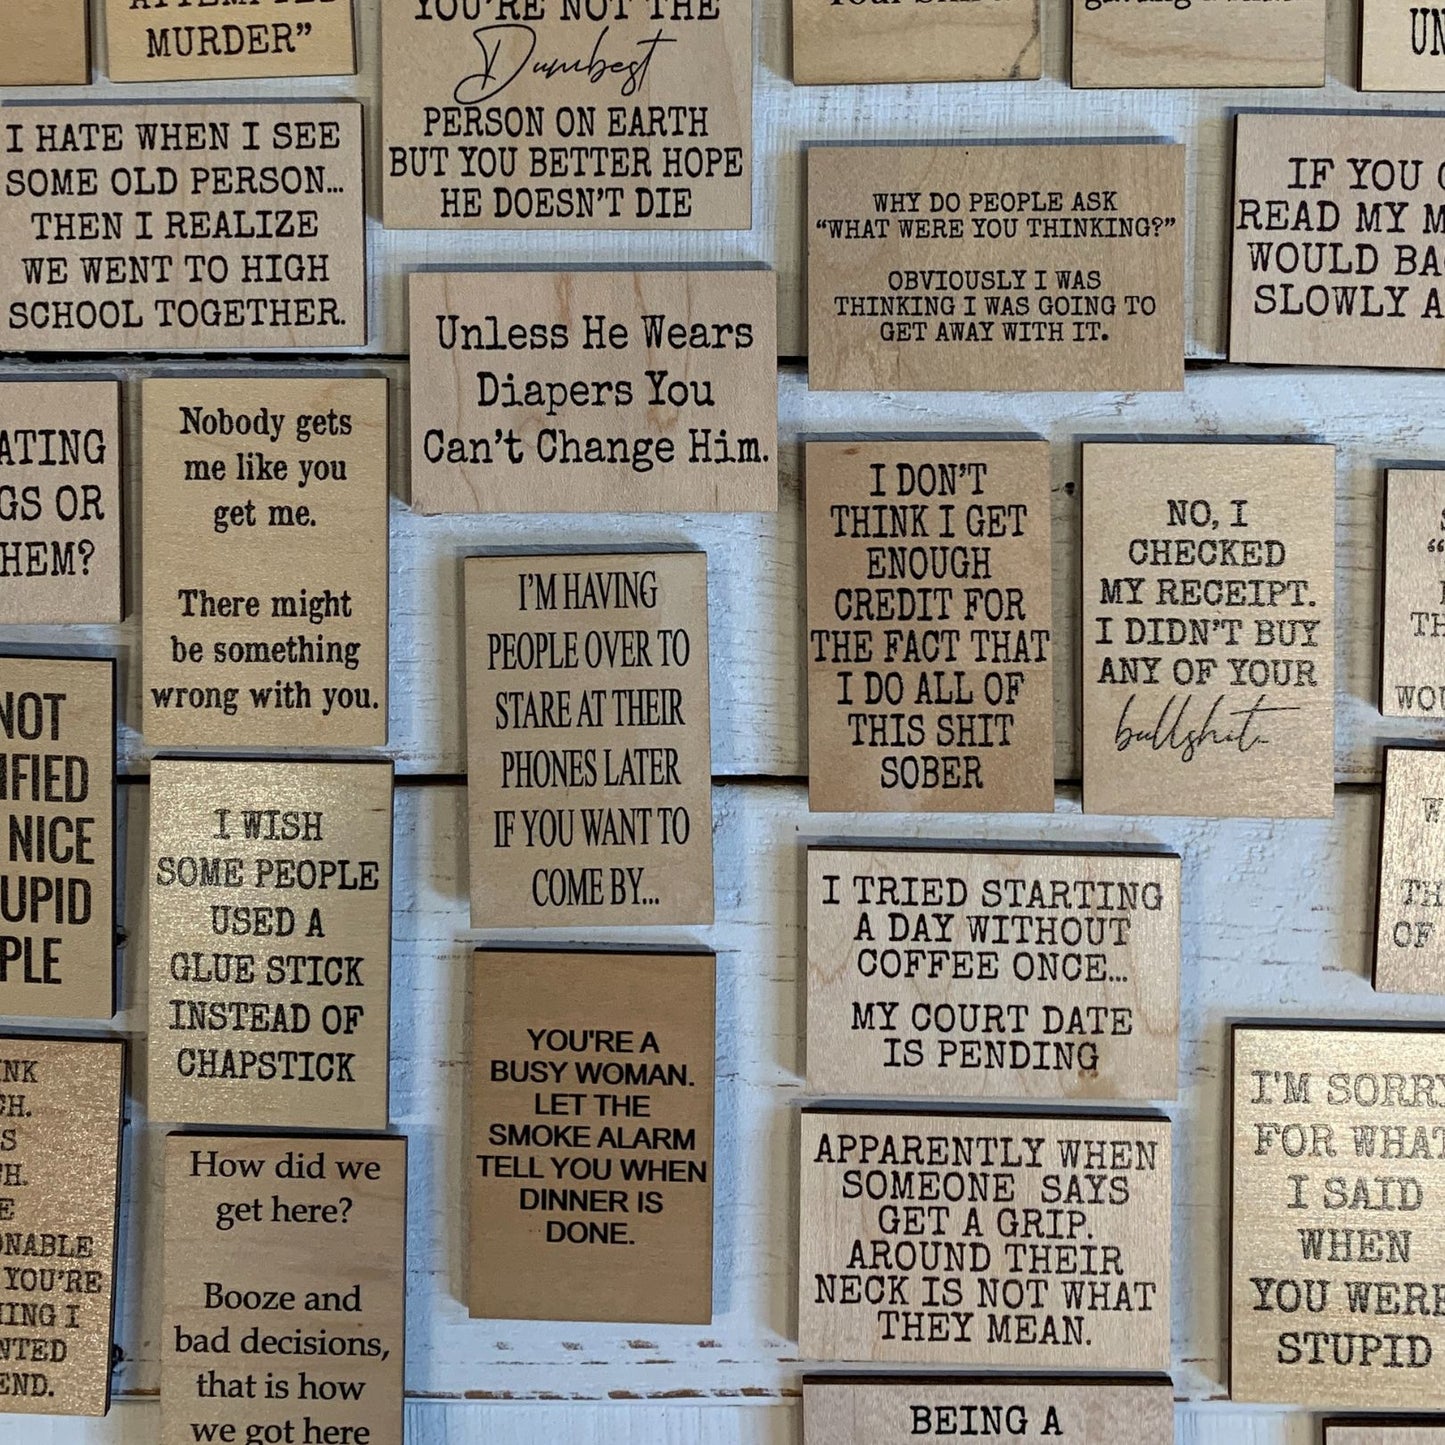 MURDER”
YOU'RE NOT THE
Dumbest
PERSON ON EARTH
BUT YOU BETTER HOPE
HE DOESN'T DIE
I HATE WHEN I SEE
SOME OLD PERSON...
THEN I REALIZE
WE WENT TO HIGH
SCHOOL TOGETHER.
WHY DO PEOPLE ASK
“WHAT WERE YOU THINKING?”
OBVIOUSLY I WAS
THINKING I WAS GOING TO
GET AWAY WITH IT.
IF YOU
READ MY
WOULD
SLOWLY
Unless He Wears
Diapers You
Can't Change Him.
OR
Nobody gets
me like you
get me.
There might
be something
wrong with you.
I DON'T
THINK I GET
ENOUGH
CREDIT FOR
THE FACT THAT
I DO ALL OF
THIS SHIT
SOBER
NO, I
CHECKED
MY RECEIPT.
I DIDN'T BUY
ANY OF YOUR
bullshit.
I'M HAVING
PEOPLE OVER TO
STARE AT THEIR
PHONES LATER
IF YOU WANT TO
COME BY...
NOT
NICE
I WISH
SOME PEOPLE
USED A
GLUE STICK
INSTEAD OF
CHAPSTICK
I TRIED STARTING
A DAY WITHOUT
COFFEE ONCE...
MY COURT DATE
IS PENDING
OF
YOU'RE A
BUSY WOMAN.
LET THE
SMOKE ALARM
TELL YOU WHEN
DINNER IS
DONE.
YOU'RE
I
How did we
get here?
Booze and
bad decisions,
that is how
we got here
APPARENTLY WHEN
SOMEONE SAYS
GET A GRIP.
AROUND THEIR
NECK IS NOT WHAT
THEY MEAN.
I'M SORRY
FOR WHAT
I SAID
WHEN
YOU WERE
STUPID
BEING A